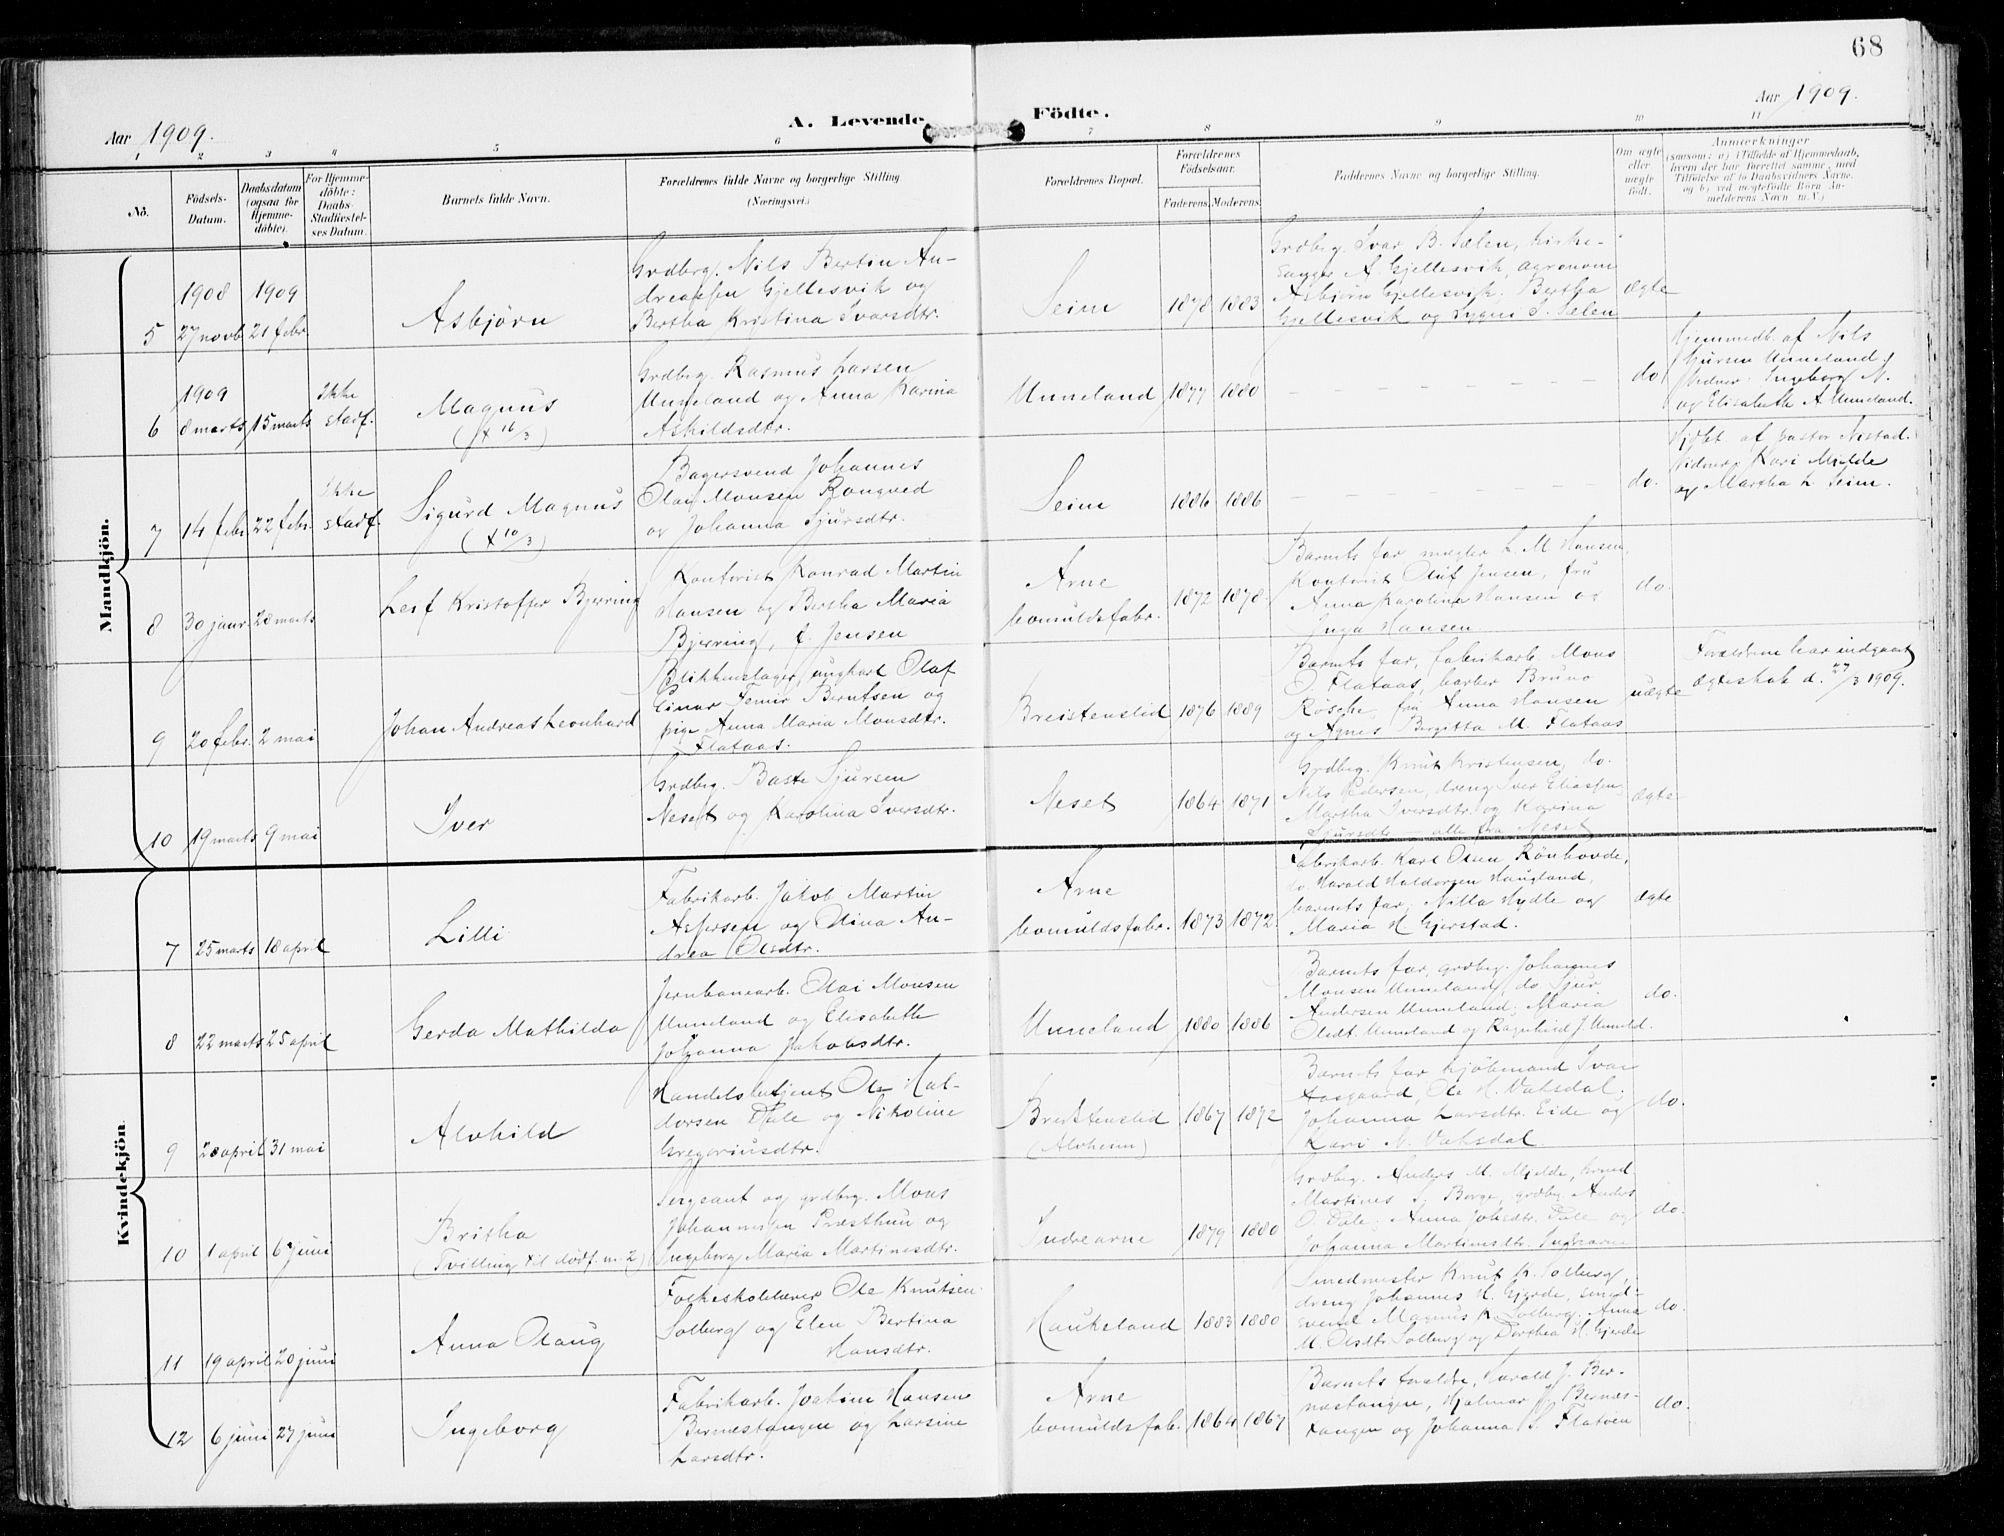 68
Aar 1909.
A. Levende Födte.
Aar 1909.
1 2 3 4 5 6 7 8 9 10 11
No.
Födsels-
Datum.
Daabsdatum
(ogsaa for
Hjemme-
döbte).
For Hjemme-
döbte:
Daabs-
Stadfæstel-
ses Datum.
Barnets fulde Navn.
Forældrenes fulde Navne og borgerlige Stilling
(Næringsvei.)
Forældrenes Bopæl.
Forældrenes
Födselsaar.
Faderens. Moderens.
Faddernes Navne og borgerlige Stilling.
Om ægte
eller
uægte
födt.
Anmærkninger
(saasom: a) i Tilfælde af Hjemmedaab,
hvem der har forrettet samme, med
Tilföielse af to Daabsvidners Navne,
og b) ved uægtefödte Börn An-
melderens Navn m.V.)
Mandkjön.
5
1908
27 novb.
1909
21 febr.
Asbjörn
Grdbrg. Nils Bertin An-
dreassen Gjellesvik og
Bertha Kristina Ivarsdtr.
Seim
1878 1883
Grdbrg. Ivar B. Sælen, kirke-
sanger A. Gjellesvik, agronom
Asbjörn Gjellesvik, Bertha
Gjellesvik og Sygni S. Sælen
ægte
6
1909
8 marts
15 marts
Ikke
stadf.
Magnus
(+ 16/3)
Grdbrg. Rasmus Larsen
Unneland og Anna Karina
Askildsdtr.
Unneland
1877 1880
do
Hjemmedt. af Nils
Sjursen Unneland.
Vidner: Ingeborg N.
og Elisabeth A. Unneland.
7
14 febr.
22 febr.
Ikke
stadf.
Sigurd Magnus
(+ 10/3)
Bagersvend Johannes
Olai Monsen Rongved
og Johanna Sjursdtr.
Seim
1886 1886
do.
Hjdbt. af pastor Nistad.
Vidner: Kari Mjelde
og Martha L. Seim.
8
30 janr.
28 marts
Leif Kristoffer Bjerring
Kontorist Konrad Martin
Hansen og Bertha Maria
Bjerring, f. Jensen
Arne
bomuldsfabr.
1872 1878
Barnets far, mægler L. M. Hansen,
kontorist Oluf Jensen, fru
Anna Karolina Hansen og
Inga Hansen.
do.
9
20 febr.
2 mai
Johan Andreas Leonhard
Blikkenslager, ungkarl Olaf
Einar Berntsen og
pige Anna Maria Monsdtr.
Flataas.
Breistenslid
1876 1889
Barnets far, fabrikarb. Mons
O. Flataas, barber Bruno
Rosche, fru Anna Hansen
og Agnes Bergitta M. Flataas
uægte
Forældrene har indgaaet
ægteskab d. 27/3 1909.
10
19 marts
9 mai
Iver
Grdbrg. Baste Sjursen
Neset og Karolina Iversdtr.
Neset
1864 1871
Grdbrg. Knut Kristensen, do.
Nils Pedersen, dreng Iver Eliassen,
Martha Iversdtr. og Karina
Sjursdtr. – alle fra Neset
ægte
Kvindekjön.
7
25 marts
18 april
Lilli
Fabrikarb. Jakob Martin
Aspersen og Olina An-
drea Olsdtr.
Arne
bomuldsfabr.
1873 1872
Fabrikarb. Karl Olsen Rönhovde,
do. Harald Haldorsen Haugland,
barnets far, Nilla Hydle og
Maria H. Gjerstad.
ægte
8
22 marts
25 april
Gerda Mathilda
Jernbanearb. Olai Monsen
Unneland og Elisabeth
Johanna Jakobsdtr.
Unneland
1880 1886
Barnets far, grdbrg. Johannes
Monsen Unneland, do. Sjur
Andersen Unneland. Maria
Olsdt. Unneland og Ragnhild J. Unneld.
do.
9
28 april
31 mai
Alvhild
Handelsbetjent Ole Hal-
dorsen Dale og Nikoline
Gregoriusdtr.
Breistenslid
(Alvheim)
1867 1872
Barnets far, kjöbmand Ivar
Aasgaard, Ole H. Vaksdal,
Johanna Larsdtr. Eide og
Kari N. Vaksdal.
do.
10
1 april
6 juni
Britha
(Tvilling til dödf. n. 2)
Sergeant og grdbrg. Mons
Johannesen Præsthun og
Ingeborg Maria Martinesdtr.
Indrearne
1879 1880
Grdbrg. Anders M. Mjelde,
Martines S. Borge, grdbrg. Anders
O. Dale, Anna Johsdtr. Dale og
Johanna Martinesdtr. Indrearne
do.
11
19 april
20 juni
Anna Olaug
Folkeskolelærer Ole Knutsen
Solberg og Elen Bertina
Hansdtr.
Haukeland
1883 1880
Smedmester Knut K. Solberg,
dreng Johannes H. Gjerde, smed-
svend Magnus K. Solberg, Anna
M. Olsdtr. Solberg og Dorthea H. Gjerde
do.
12
6 juni
27 juni
Ingeborg
Fabrikarb. Joakim Hansen
Bernestangen og Larsine
Larsdtr.
Arne
bomuldsfab.
1864 1867
Barnets forældre, Harald J. Ber-
nestangen, Hjalmar J. Bernes-
tangen og Johanna S. Flatöen
do.